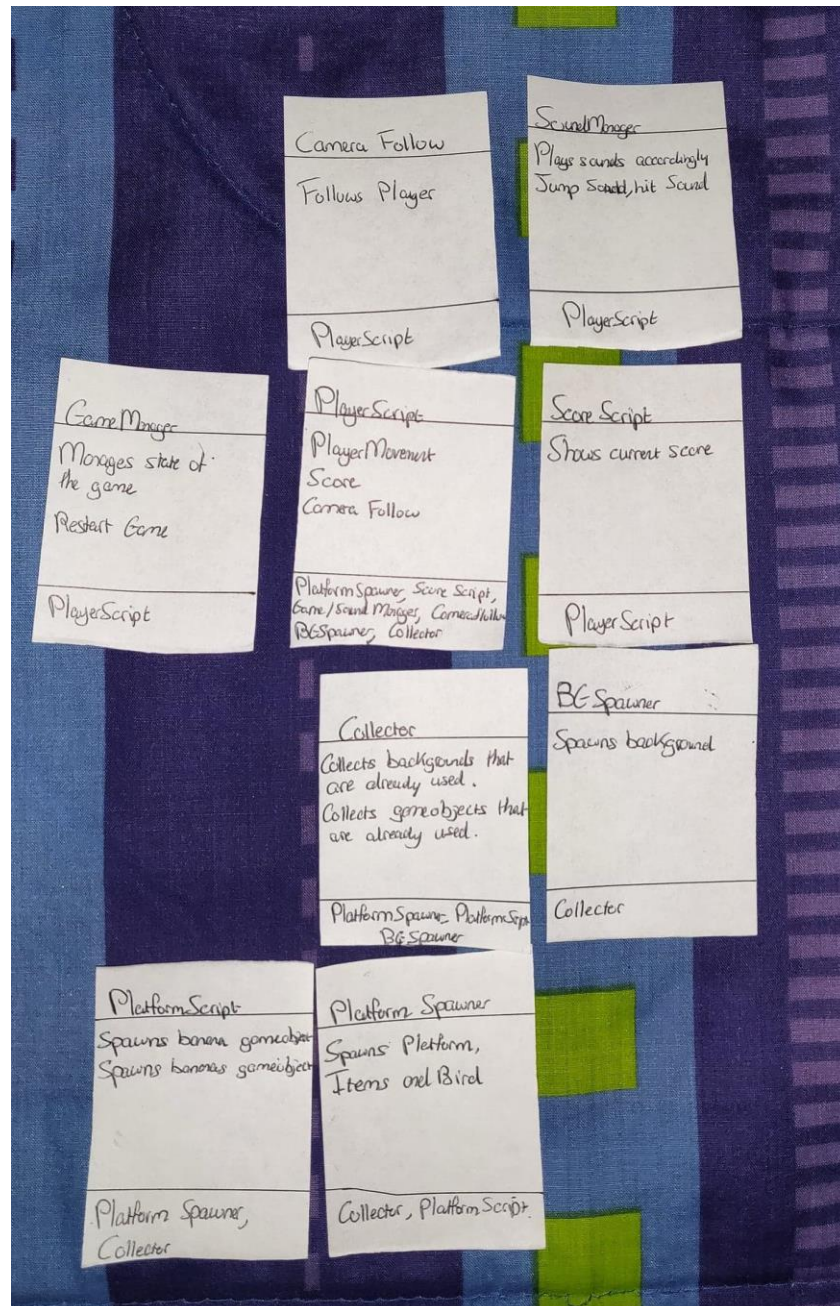 Camera Follow
Follows Player
PlayerScript
SoundManager
Plays sounds accordingly
Jump Sound, hit Sound
PlayerScript
GameManager
Manages state of
the game
Restart Game
PlayerScript
PlayerScript
PlayerMovement
Score
Camera Follow
PlatformSpawner, Score Script,
Game/Sound Manager, CameraFollow
BGSpawner, Collector
Score Script
Shows current score
PlayerScript
Collector
Collects backgrounds that
are already used.
Collects gameobjects that
are already used.
PlatformSpawner, PlatformScript
BGSpawner
BGSpawner
Spawns background
Collector
PlatformScript
Spawns banana gameobject
Spawns bananas gameobject
Platform Spawner,
Collector
Platform Spawner
Spawns Platform,
Items and Bird
Collector, PlatformScript.